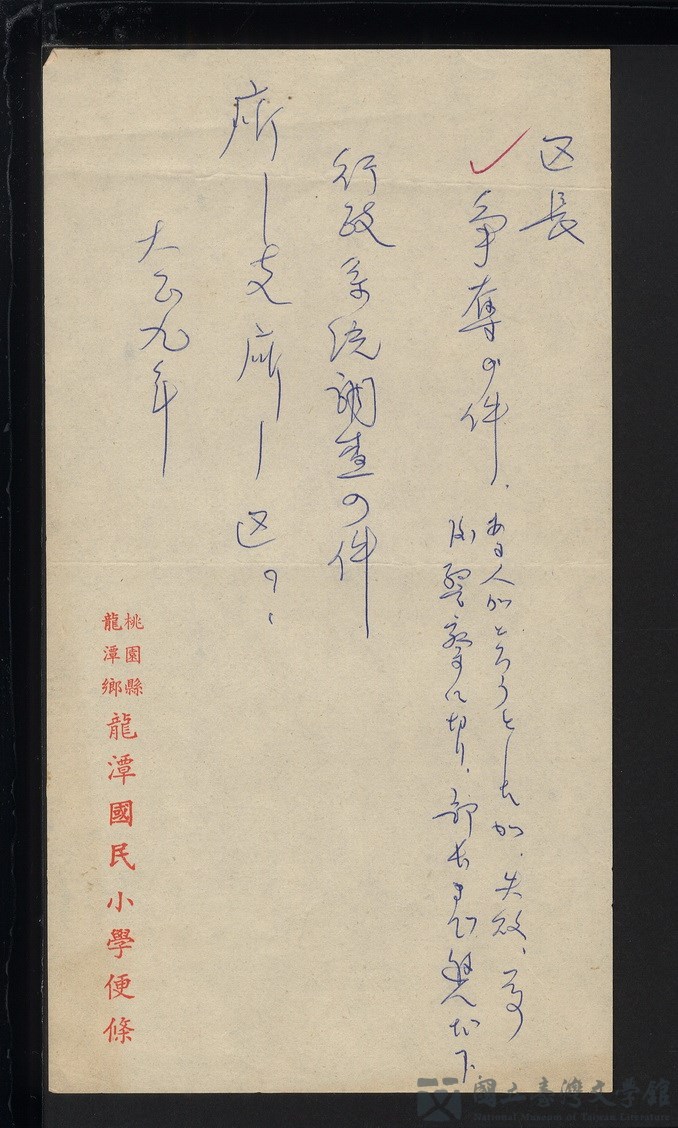 区長
争奪の件.
ある人がとろうとしたが、失敗、
警察に切り、部長
行政系统調査の件
廰—支廰—区
大正九年
桃園縣
龍潭鄉
龍潭國民小學便條
國立臺灣文學館
National Museum of Taiwan Literature